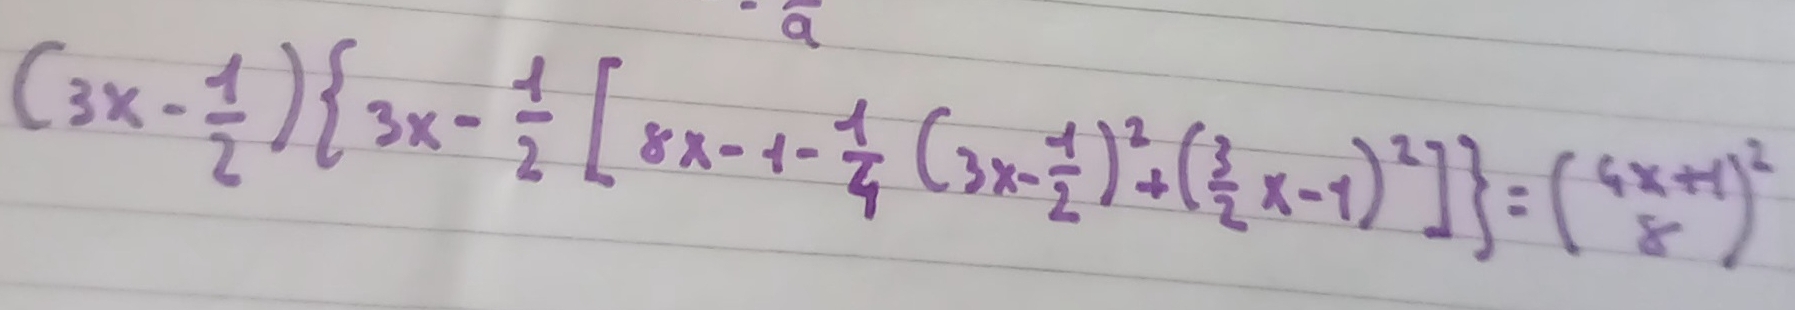 a
(3x - 1/2) { 3x - 1/2 [ 8x - 1 - 1/4 (3x - 1/2)² + (3/2 x - 1)² ] } = (4x+1 8)²